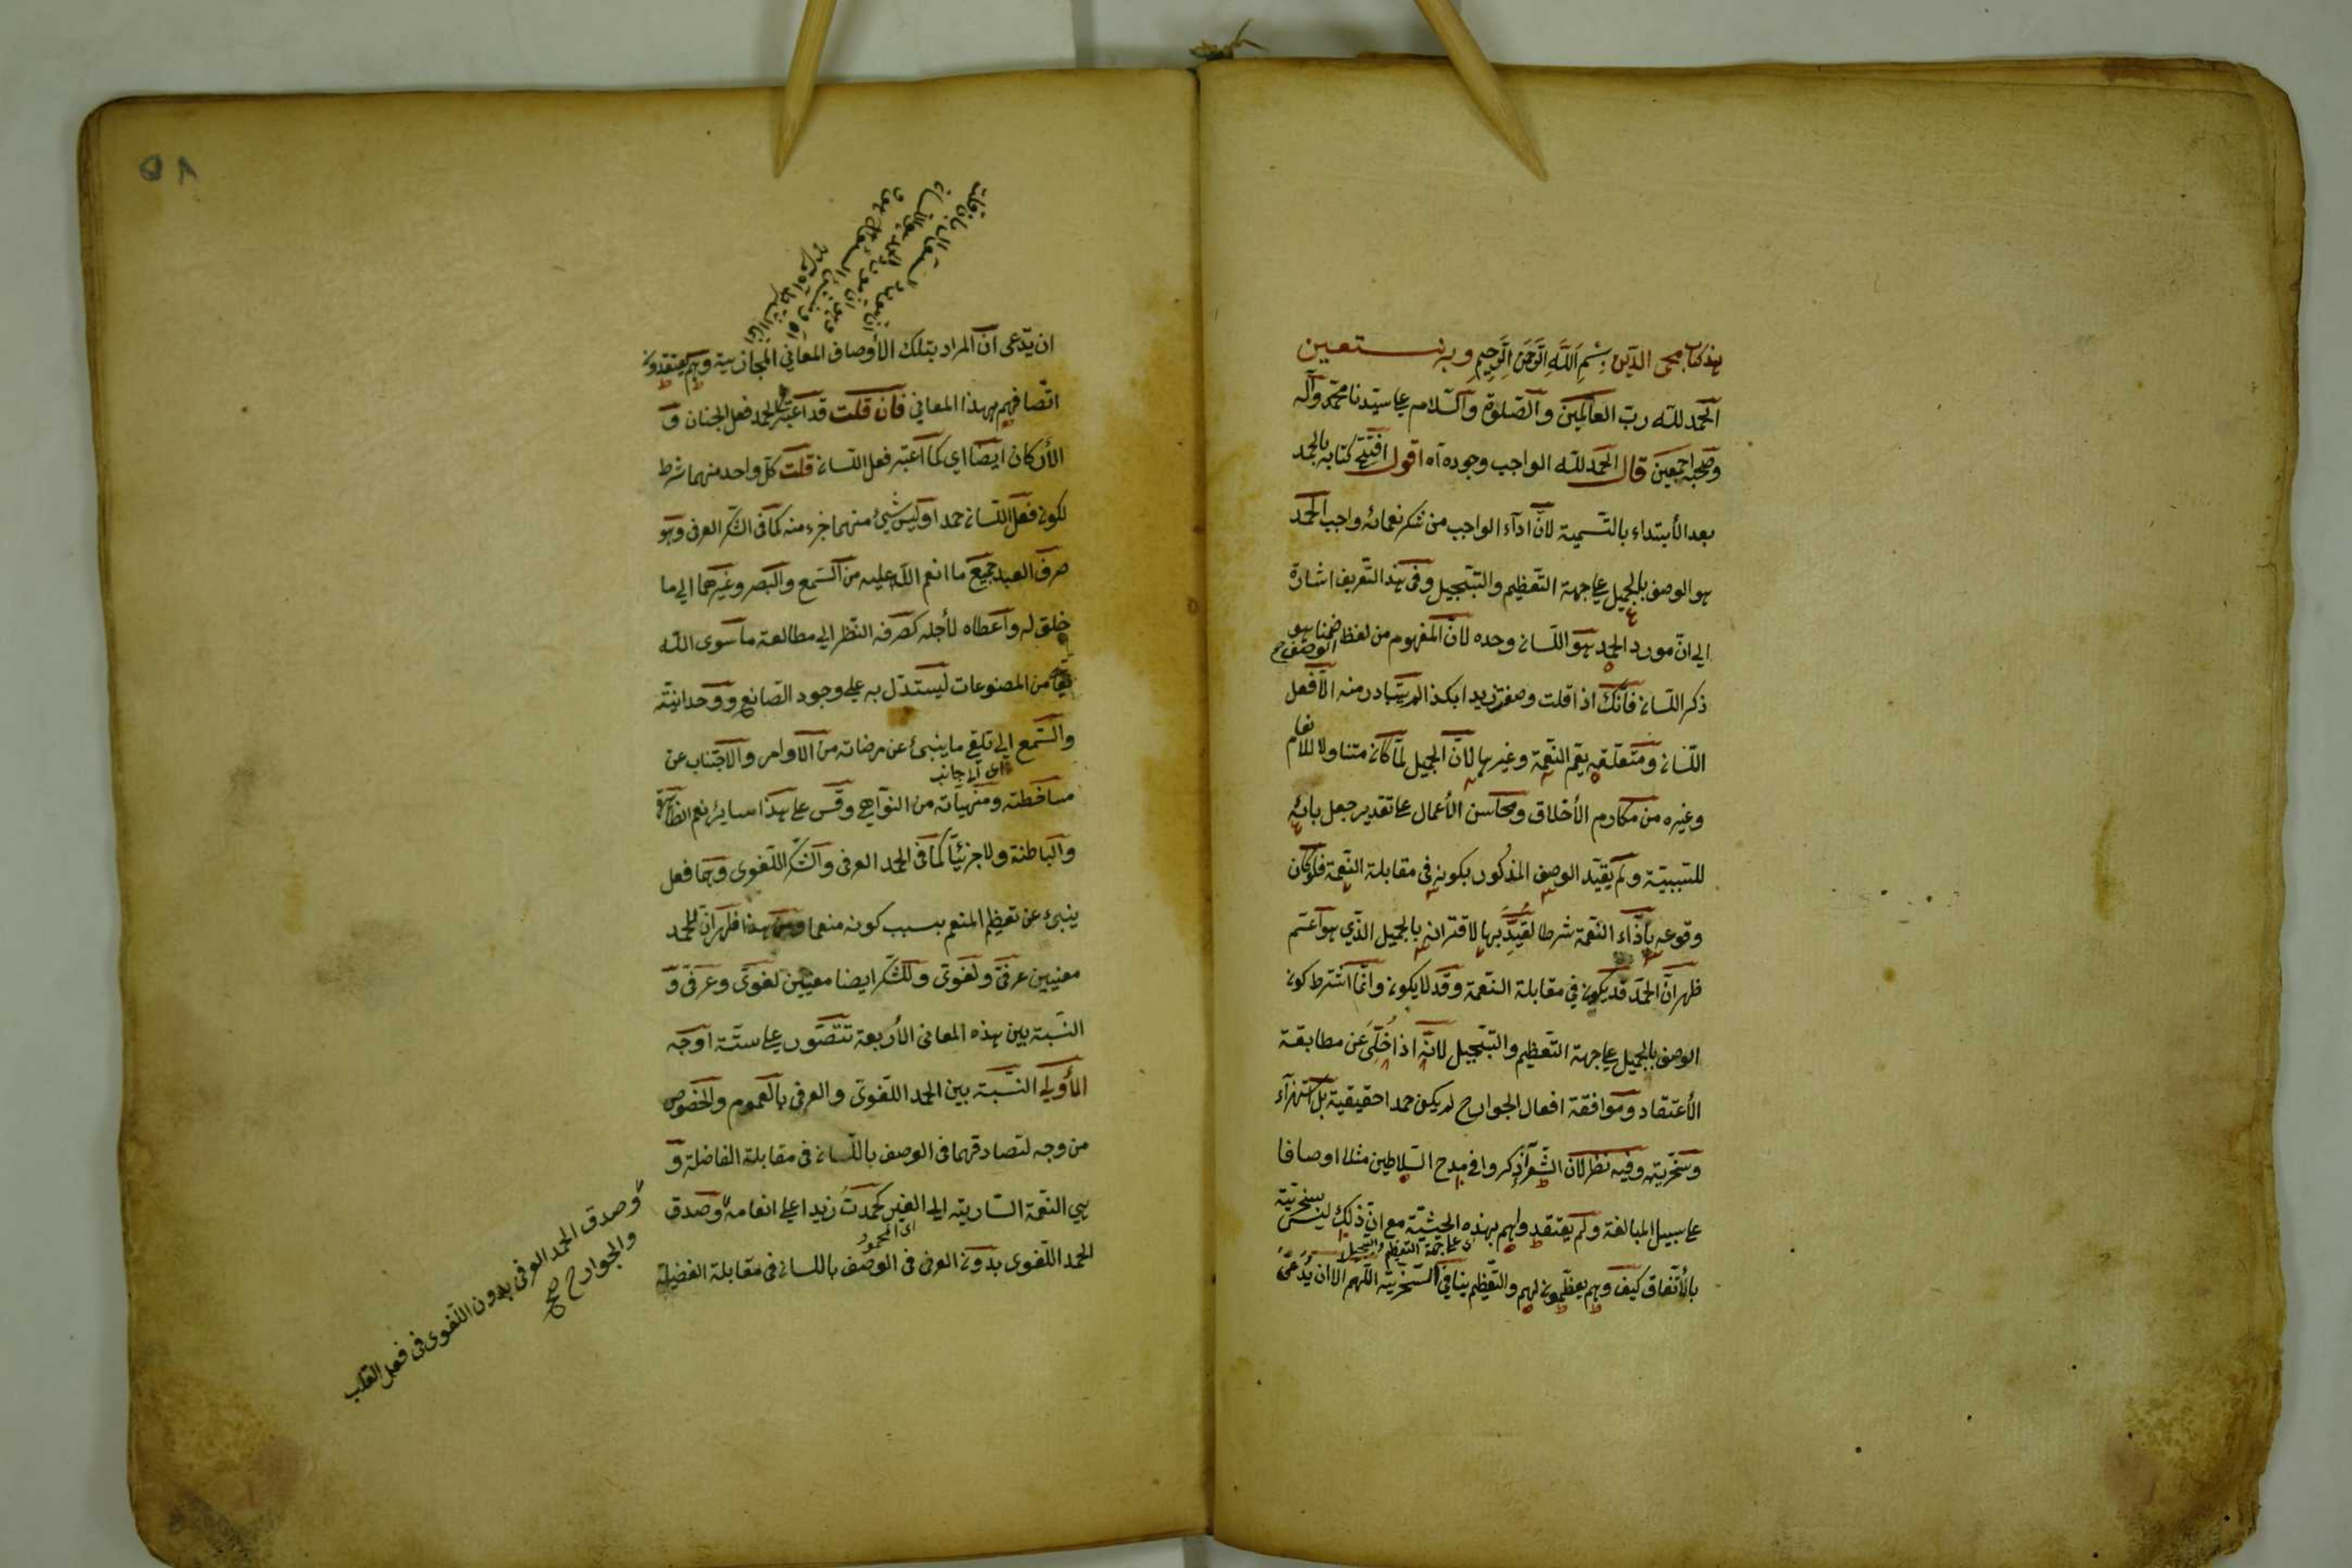 هذا كتاب محى الدين بِسْمِ اللَّهِ الرَّحْمَنِ الرَّحِيمِ وبه نستعين
الحمد لله رب العالمين والصلوة والسلام على سيدنا محمد وآله
وصحبه اجمعين قال الحمد لله الواجب وجوده اه اقول افتتح كتابه بالحمد
بعد الأبتداء بالتسمية لانّ اداء الواجب من شكر نعمائه واجب الحمد
هو الوصف بالجميل على جهة التعظيم والتبجيل وفى هذا التعريف اشارة
الى انّ مورد الحمد هو اللسان وحده لانّ المفهوم من لفظ الوصف ضمنا هو
ذكر اللسان فانّك اذا قلت وصفت زيدا بكذا لم يتبادر منه الّا فعل
اللسان ومتعلقه يعم النعمة وغيرها لانّ الجميل لمّا كان متناولا للانعام
وغيره من مكارم الأخلاق ومحاسن الأعمال على تقدير جعل بائه
للسببيّة ولم يقيّد الوصف المذكور بكونه فى مقابلة النعمة فلو كان
وقوعه بأزاء النعمة شرطا لقيّد بها لاقترانه بالجميل الذي هو اعمّ
ظهر انّ الحمد قد يكون في مقابلة النعمة وقد لا يكون وانّما اشترط كون
الوصف بالجميل على جهة التعظيم والتبجيل لانّه اذا خلى عن مطابقة
الأعتقاد وموافقة افعال الجوارح لم يكن حمدا حقيقية بل استهزآء
وسخريّة وفيه نظر لانّ الشعرآء ذكروا فى مدح السلاطين مثلا اوصافا
على سبيل المبالغة ولم يعتقدوهم بهذه الحيثيّة مع انّ ذلك ليس بسخريّة
اى على جهة التعظيم والتبجيل
بالأتّفاق كيف وهم يعظّمون لهم والتعظيم ينافى السخريّة اللّهم الا ان يُدّعىَ
ان يدّعى انّ المراد بتلك الأوصاف المعاني المجازية وهم يعتقدون
اتّصافهم بهذا المعاني فان قلت قد اعتبر فى الحمد فعل الجنان و
الأركان ايضا اى كما اعتبر فعل اللسان قلت كلّ واحد منهما شرط
لكون فعل اللسان حمدا وليس شئ منهما جزء منه كما فى الشكر العرفى وهو
صرف العبد جميع ما انعم الله عليه من السمع والبصر وغيرهما الى ما
خلق له واعطاه لأجله كصرفه النظر الى مطالعة ما سوى الله
تعالى من المصنوعات ليستدلّ به على وجود الصانع ووحدانيّته
والسمع الى تلقى ما ينبئ عن مرضاته من الاوامر والاجتناب عن
اى لا جانب
مساخطته ومنهياته من النواهى وقس على هذا سائر نعم الظاهرة
والباطنة ولا جزئيا كما فى الحمد العرفى والشكر اللغوى وهما فعل
ينبئ عن تعظيم المنعم بسبب كونه منعما ومن هذا ظهر انّ للحمد
معنيين عرفى ولغوى وللشكر ايضا معنيين لغوى وعرفى و
النسبة بين هذه المعانى الأربعة تتصوّر على ستّة اوجه
الأولى النسبة بين الحمد اللغوى والعرفى بالعموم والخصوص
من وجه لتصادقهما فى الوصف باللسان فى مقابلة الفاضلة و
هي النعمة السارية الى الغير كحمدتُ زيدا على انعامه وصدق
اى المحمود
الحمد اللغوى بدون العرفى فى الوصف باللسان فى مقابلة الفضيلة
وصدق الحمد العرفى بدون اللغوى فى فعل القلب
والجوارح صح
٥٨